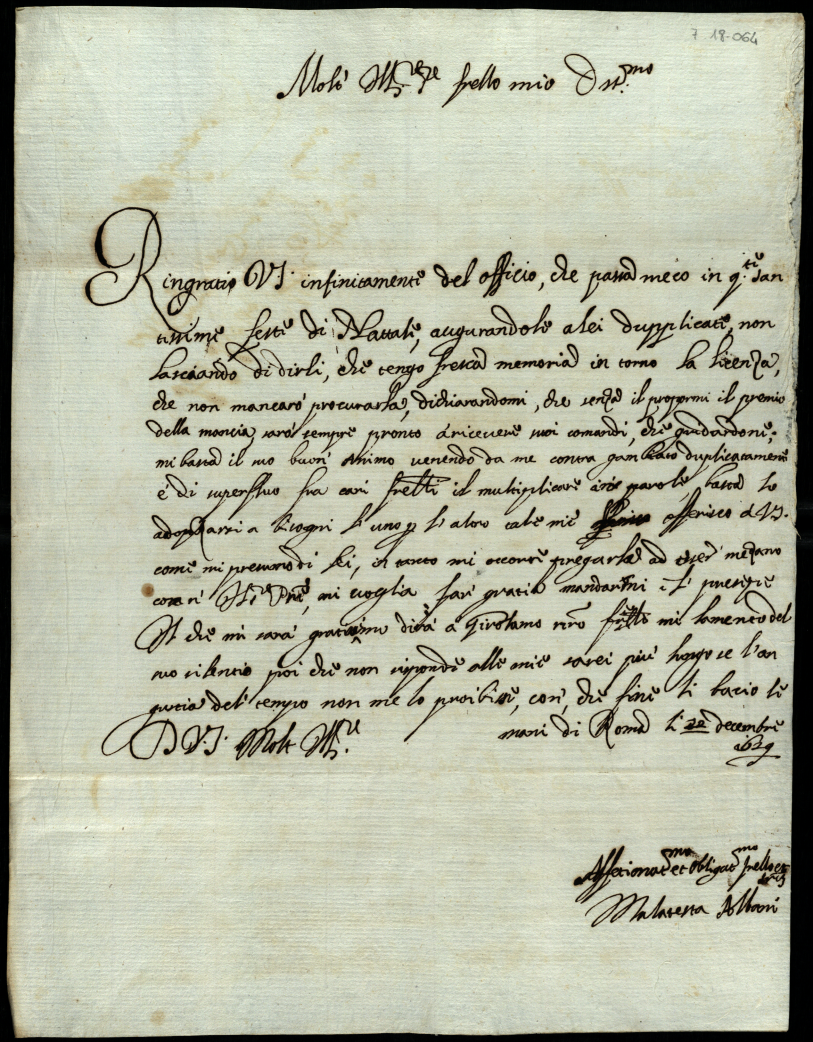 7 18-064
Molto Ill.re fr̃ello mio
Ringratio V.S. infinitamente del officio, che passa meco in q.te San
tissime feste di Nattale, augurandole a lei dupplicate, non
lasciando di dirli, che tengo fresca memoria in torno la licenza,
che non mancarò procurarla, dichiarandomi, che senza il propormi il premio
della mancia sarò sempre pronto à ricevere suoi comandi, che
mi basta il suo buon animo venendo da me contra duplicatamente
è di superfluo fra cari fr̃elli il multiplicare in parole basta lo
a bisogni l'uno p l'altro tale mi offerisco à V.S.
come mi prometto di lei, in tanto mi occorre pregarla ad esser mezano
con il, mi voglia far gratia mandarmi
il che mi sarà gratissimo dirà a Girolamo nr̃o fr̃ello mi lamento del
suo silentio poi che non risponde alle mie sarei più longo se l'an
gustia del tempo non me lo proibisse, con, che fine li bacio le
D V.S. Molt Ill.re mani di Roma li decembre
1629
Affetionat.mo et obligat.mo fr̃ello et
Malatesta Albani